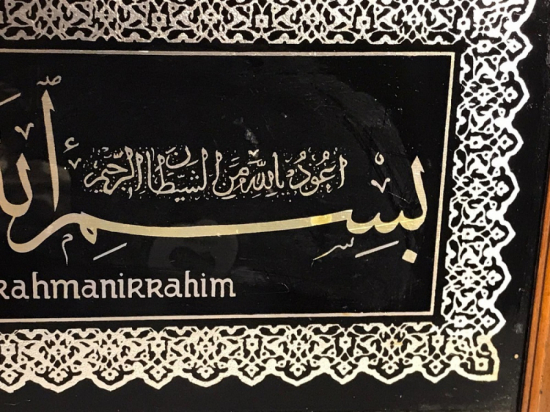 اعُوذُ بِاللهِ مِنَ الشيطان الرَّجيم
بِسْمِ
rahmanirrahim